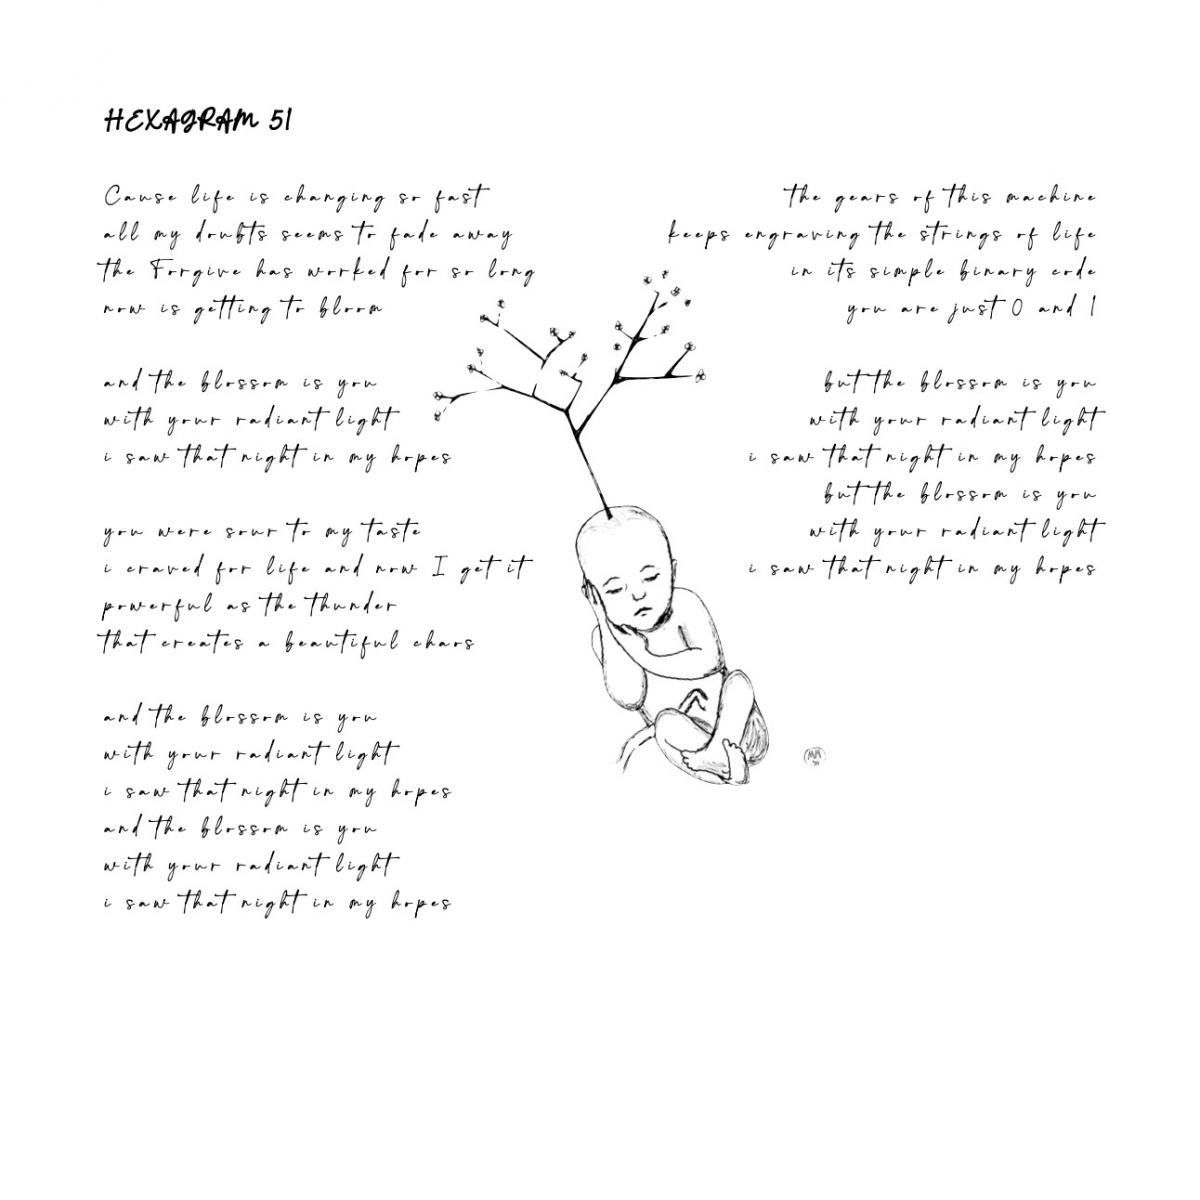 HEXAGRAM 51
Cause life is changing so fast
all my doubts seems to fade away
the Forgive has worked for so long
now is getting to bloom
and the blossom is you
with your radiant light
i saw that night in my hopes
you were sour to my taste
i craved for life and now I get it
powerful as the thunder
that creates a beautiful chaos
and the blossom is you
with your radiant light
i saw that night in my hopes
and the blossom is you
with your radiant light
i saw that night in my hopes
the gears of this machine
keeps engraving the strings of life
in its simple binary code
you are just 0 and 1
but the blossom is you
with your radiant light
i saw that night in my hopes
but the blossom is you
with your radiant light
i saw that night in my hopes
MM